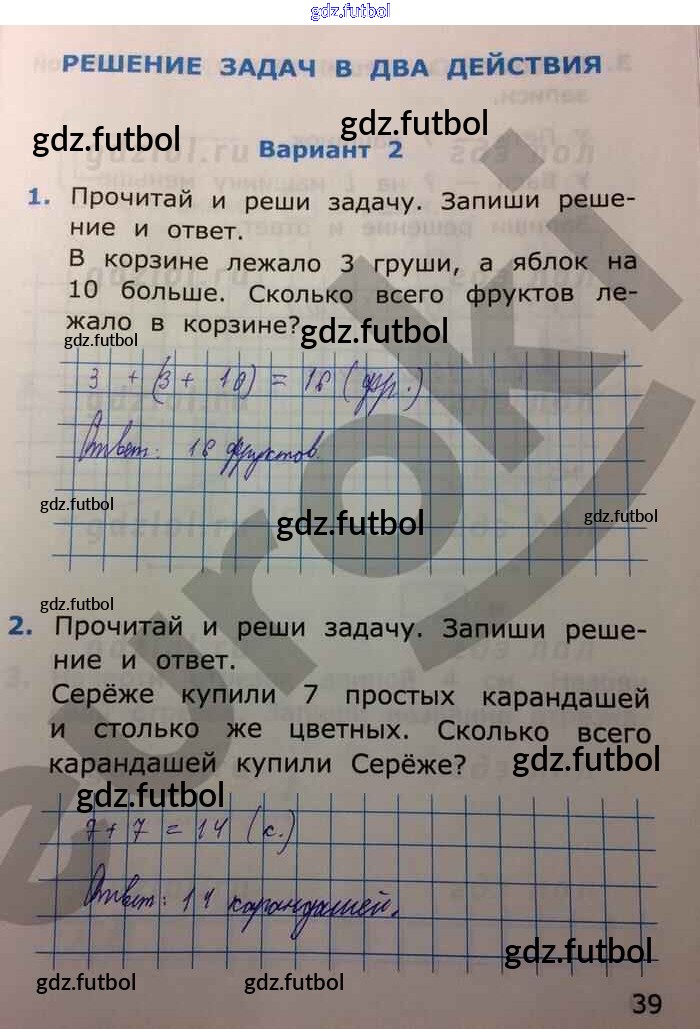 gdz.futbol
РЕШЕНИЕ ЗАДАЧ В ДВА ДЕЙСТВИЯ
gdz.futbol gdz.futbol
Вариант 2
1. Прочитай и реши задачу. Запиши реше-
ние и ответ.
В корзине лежало 3 груши, а яблок на
10 больше. Сколько всего фруктов ле-
жало в корзине?
gdz.futbol gdz.futbol
3 + (3 + 10) = 16 (фр.)
Ответ: 16 фруктов.
gdz.futbol gdz.futbol gdz.futbol
gdz.futbol
2. Прочитай и реши задачу. Запиши реше-
ние и ответ.
Серёже купили 7 простых карандашей
и столько же цветных. Сколько всего
карандашей купили Серёже?
gdz.futbol
gdz.futbol
7 + 7 = 14 (к.)
Ответ: 14 карандашей.
gdz.futbol
gdz.futbol gdz.futbol gdz.futbol
39
euroki